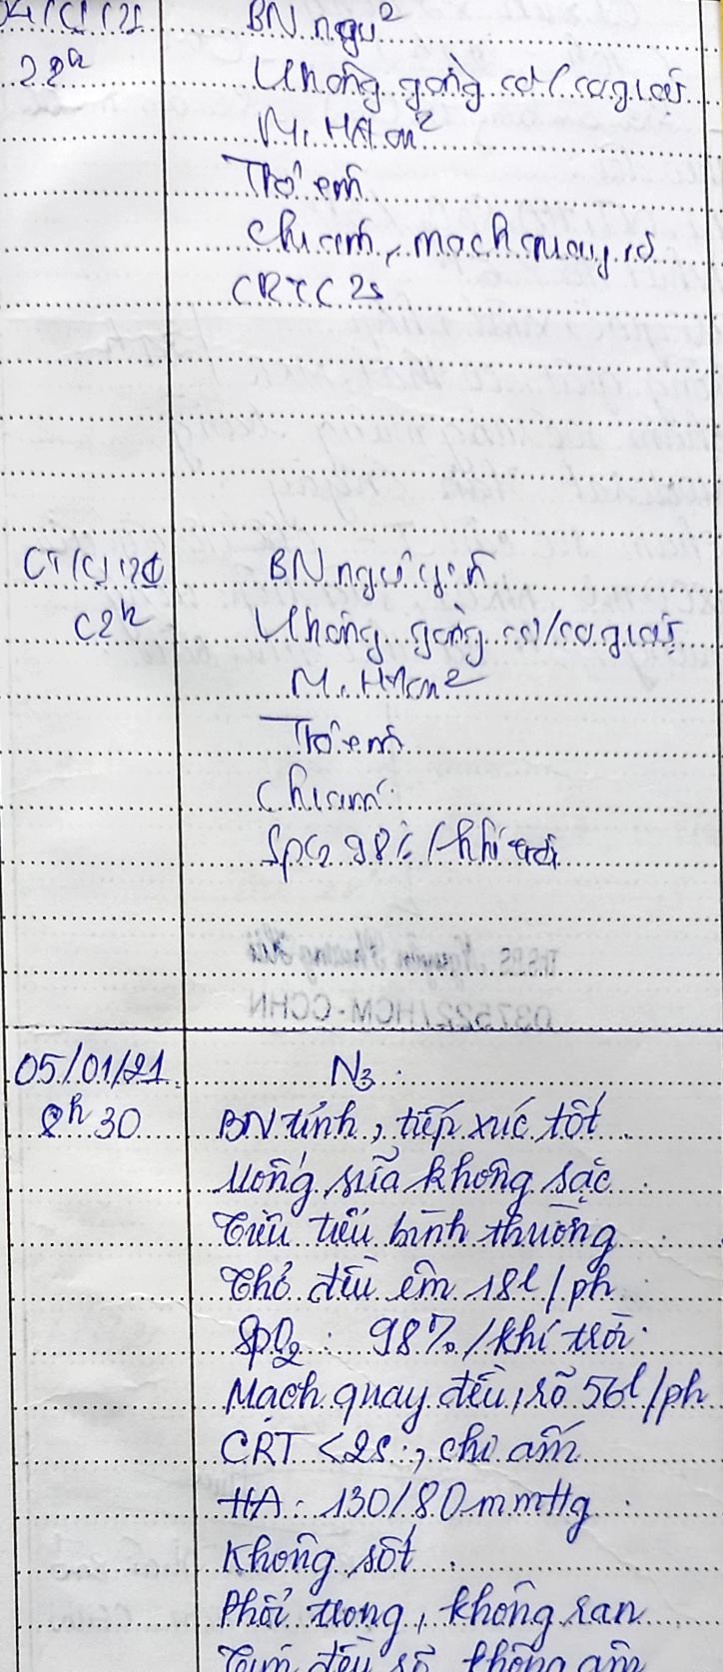 04/01/21
BN ngủ
22h
Không gồng cơ/co giật
M, HA ổn
Thở êm
Chi ấm, mạch quay rõ
CRT < 2s
05/01/21
BN ngủ yên
02h
Không gồng cơ/co giật
M, HA ổn
Thở êm
Chi ấm
SpO2 98% / khí trời
037522/HCM-CCHN
05/01/21
N3
8h30
BN tỉnh, tiếp xúc tốt
Uống sữa không sặc
Tiêu tiểu bình thường
Thở đều êm 18l/ph
SpO2: 98% / khí trời
Mạch quay đều, rõ 56l/ph
CRT <2s, chi ấm
HA: 130/80mmHg
Không sốt
Phổi trong, không ran
Tim đều rõ không âm